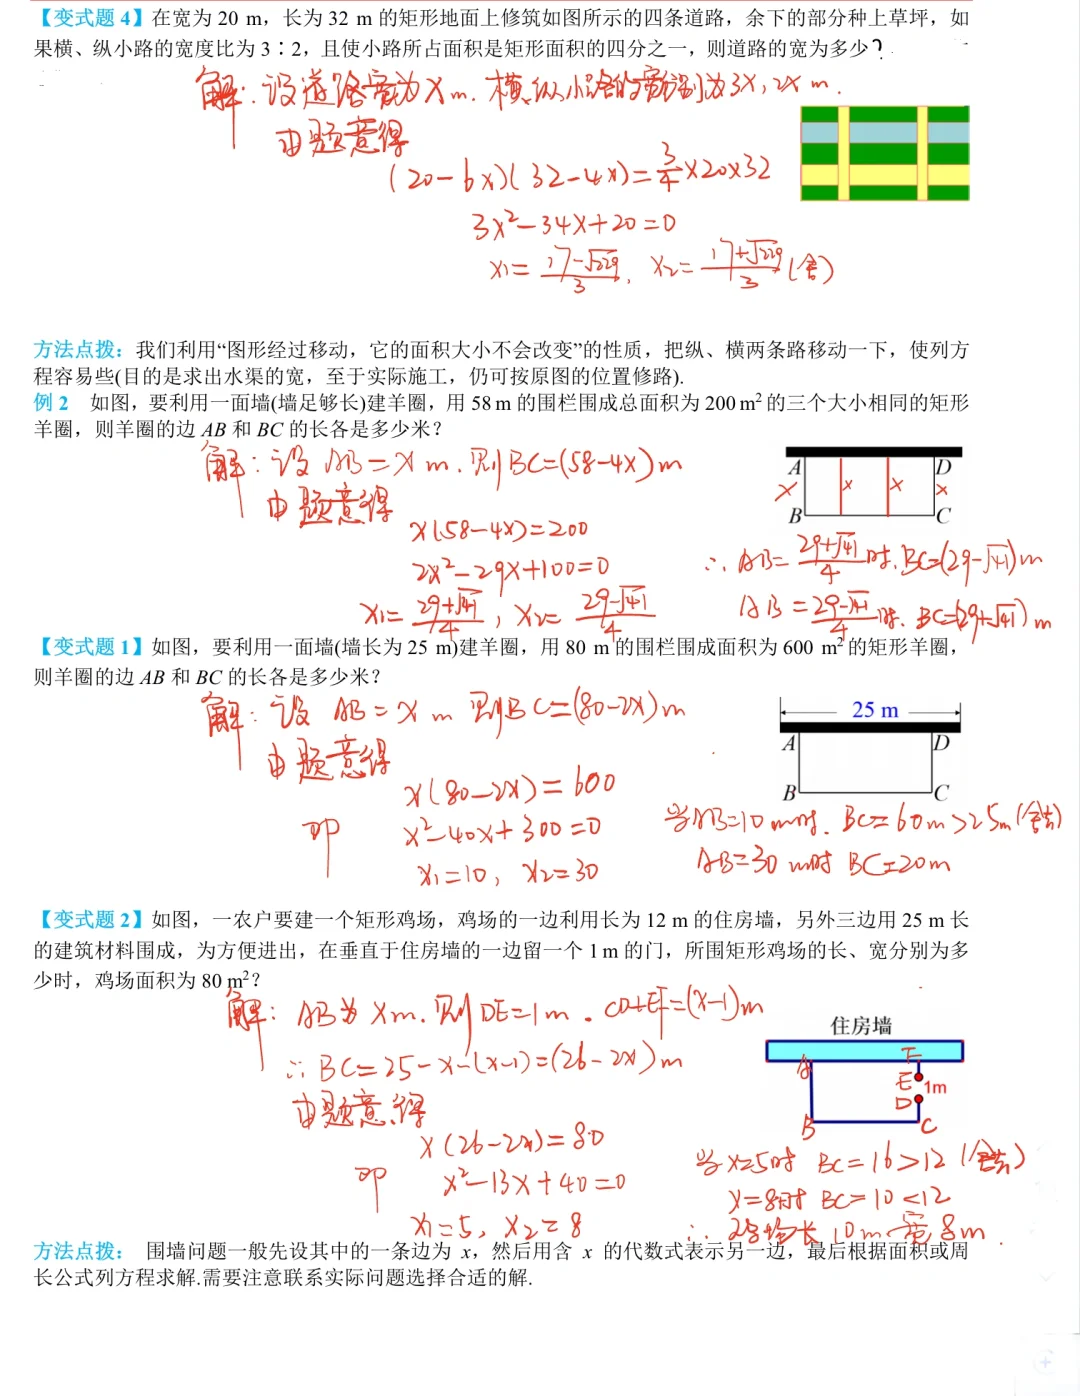 【变式题 4】在宽为 20 m，长为 32 m 的矩形地面上修筑如图所示的四条道路，余下的部分种上草坪，如
果横、纵小路的宽度比为 3∶2，且使小路所占面积是矩形面积的四分之一，则道路的宽为多少？
解：设道路宽为 x m. 横、纵小路的宽分别为 3x, 2x m.
由题意得
(20-6x)(32-4x)=3/4×20×32
3x²-34x+20=0
x₁=(17-√229)/3, x₂=(17+√229)/3 (舍)
方法点拨：我们利用“图形经过移动，它的面积大小不会改变”的性质，把纵、横两条路移动一下，使列方
程容易些(目的是求出水渠的宽，至于实际施工，仍可按原图的位置修路).
例 2 如图，要利用一面墙(墙足够长)建羊圈，用 58 m 的围栏围成总面积为 200 m² 的三个大小相同的矩形
羊圈，则羊圈的边 AB 和 BC 的长各是多少米？
解：设 AB=x m. 则 BC=(58-4x) m
由题意得
x(58-4x)=200
2x²-29x+100=0
x₁=(29+√41)/4, x₂=(29-√41)/4
A D
x x x x
B C
∴ AB=(29+√41)/4 时. BC=(29-√41) m
AB=(29-√41)/4 时. BC=(29+√41) m
【变式题 1】如图，要利用一面墙(墙长为 25 m)建羊圈，用 80 m 的围栏围成面积为 600 m² 的矩形羊圈，
则羊圈的边 AB 和 BC 的长各是多少米？
解：设 AB=x m 则 BC=(80-2x) m
由题意得
x(80-2x)=600
即 x²-40x+300=0
x₁=10, x₂=30
25 m
A D
B C
当AB=10 m时. BC=60m>25m (舍去)
AB=30 m时 BC=20m
【变式题 2】如图，一农户要建一个矩形鸡场，鸡场的一边利用长为 12 m 的住房墙，另外三边用 25 m 长
的建筑材料围成，为方便进出，在垂直于住房墙的一边留一个 1 m 的门，所围矩形鸡场的长、宽分别为多
少时，鸡场面积为 80 m²？
解：AB为 x m. 则 DE=1 m. CD+EF=(x-1) m
∴ BC=25-x-(x-1)=(26-2x) m
由题意得
x(26-2x)=80
即 x²-13x+40=0
x₁=5, x₂=8
住房墙
A F
E 1m
D
B C
当 x=5时 BC=16>12 (舍去)
x=8时 BC=10<12
∴ 鸡场长 10 m 宽 8 m.
方法点拨： 围墙问题一般先设其中的一条边为 x，然后用含 x 的代数式表示另一边，最后根据面积或周
长公式列方程求解.需要注意联系实际问题选择合适的解.